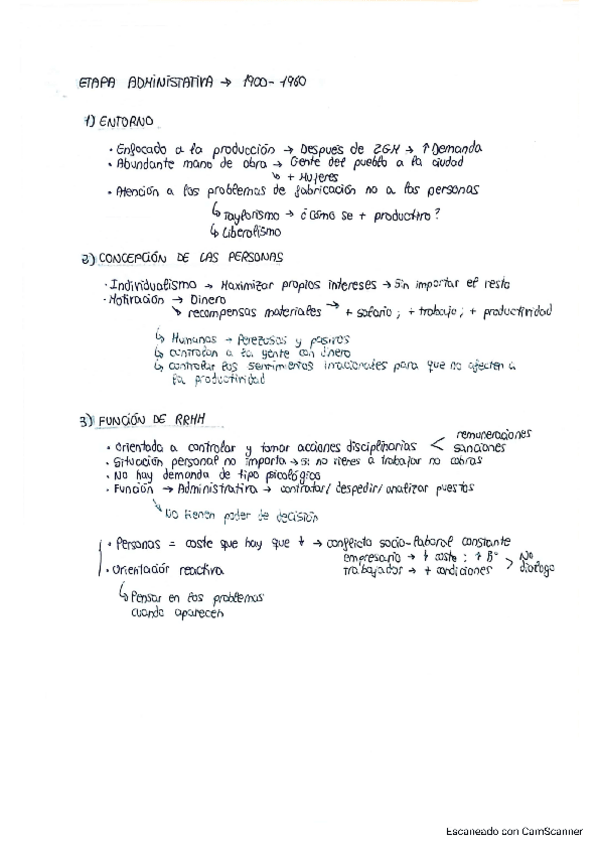 ETAPA ADMINISTATIVA → 1900-1960
1) ENTORNO
· Enfocado a la producción → Después de 2GM → ↑ Demanda
· Abundante mano de obra → Gente del pueblo a la ciudad
↳ + Mujeres
· Atención a los problemas de fabricación no a las personas
↳ Taylorismo → ¿Cómo se + productivo?
↳ Liberalismo
2) CONCEPCIÓN DE LAS PERSONAS
· Individualismo → Maximizar propios intereses → Sin importar el resto
· Motivación → Dinero
↘ recompensas materiales → + salario ; + trabajo ; + productividad
↳ Humanos → Perezosos y pasivos
↳ controlan a la gente con dinero
↳ controlar los sentimientos irracionales para que no afecten a
la productividad
3) FUNCIÓN DE RRHH
· Orientada a controlar y tomar acciones disciplinarias < remuneraciones
sanciones
· Situación personal no importa → si no vienes a trabajar no cobras
· No hay demanda de tipo psicológico
· Función → Administrativa → contratar/ despedir/ analizar puestos
↘ No tienen poder de decisión
· Personas = coste que hay que ↓ → conflicto socio-laboral constante
empresario → ↓ coste : ↑ Bº
trabajador → + condiciones > No dialogo
· Orientación reactiva
↳ Pensar en los problemas
cuando aparecen
Escaneado con CamScanner